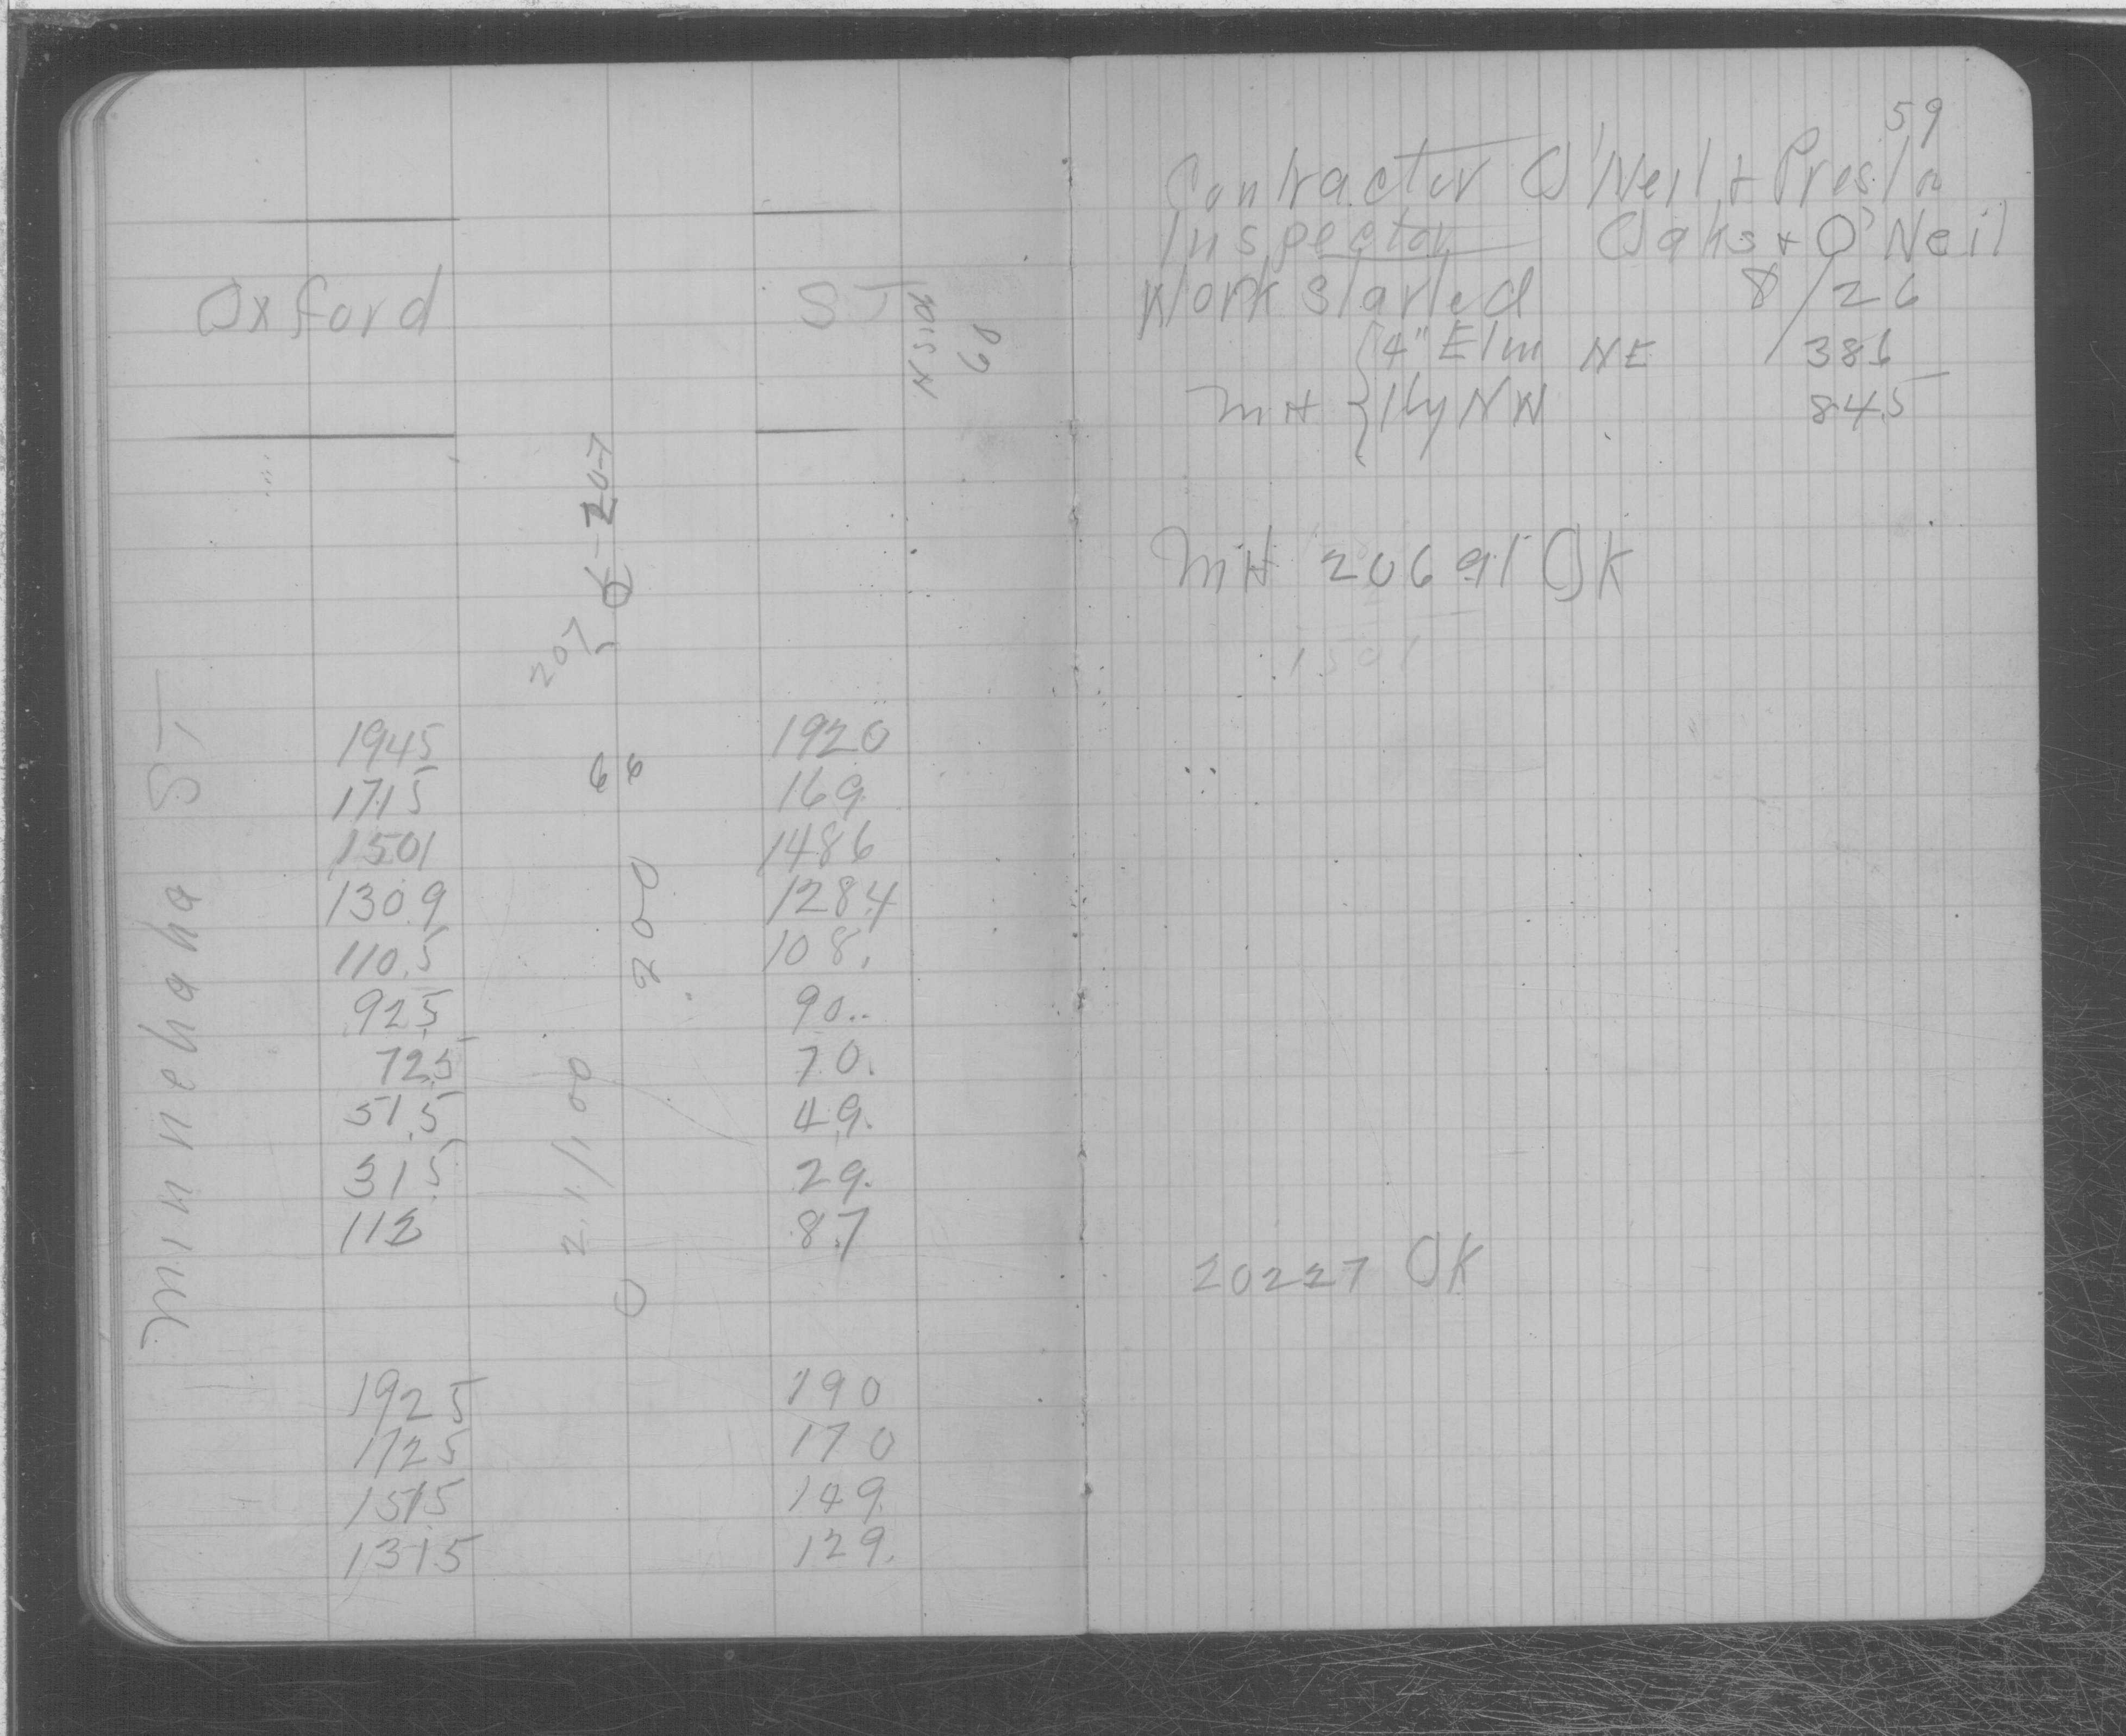 Oxford ST
N Side
60
0-207
207
Minnehaha ST
1945 1920
1715 66 169
1501 1486
1309 1284
110.5 200 108.
925 90..
725 70.
51.5 49.
315 2.1/100 29.
8.7
0
1925 190
1725 170
1515 149
1315 129.
59
Contractor O'Neil + Preston
Inspector Oaks + O'Neil
Work started 8/26
4" Elm NE 386
MH NW 845
MH 20691 OK
1501
20227 OK